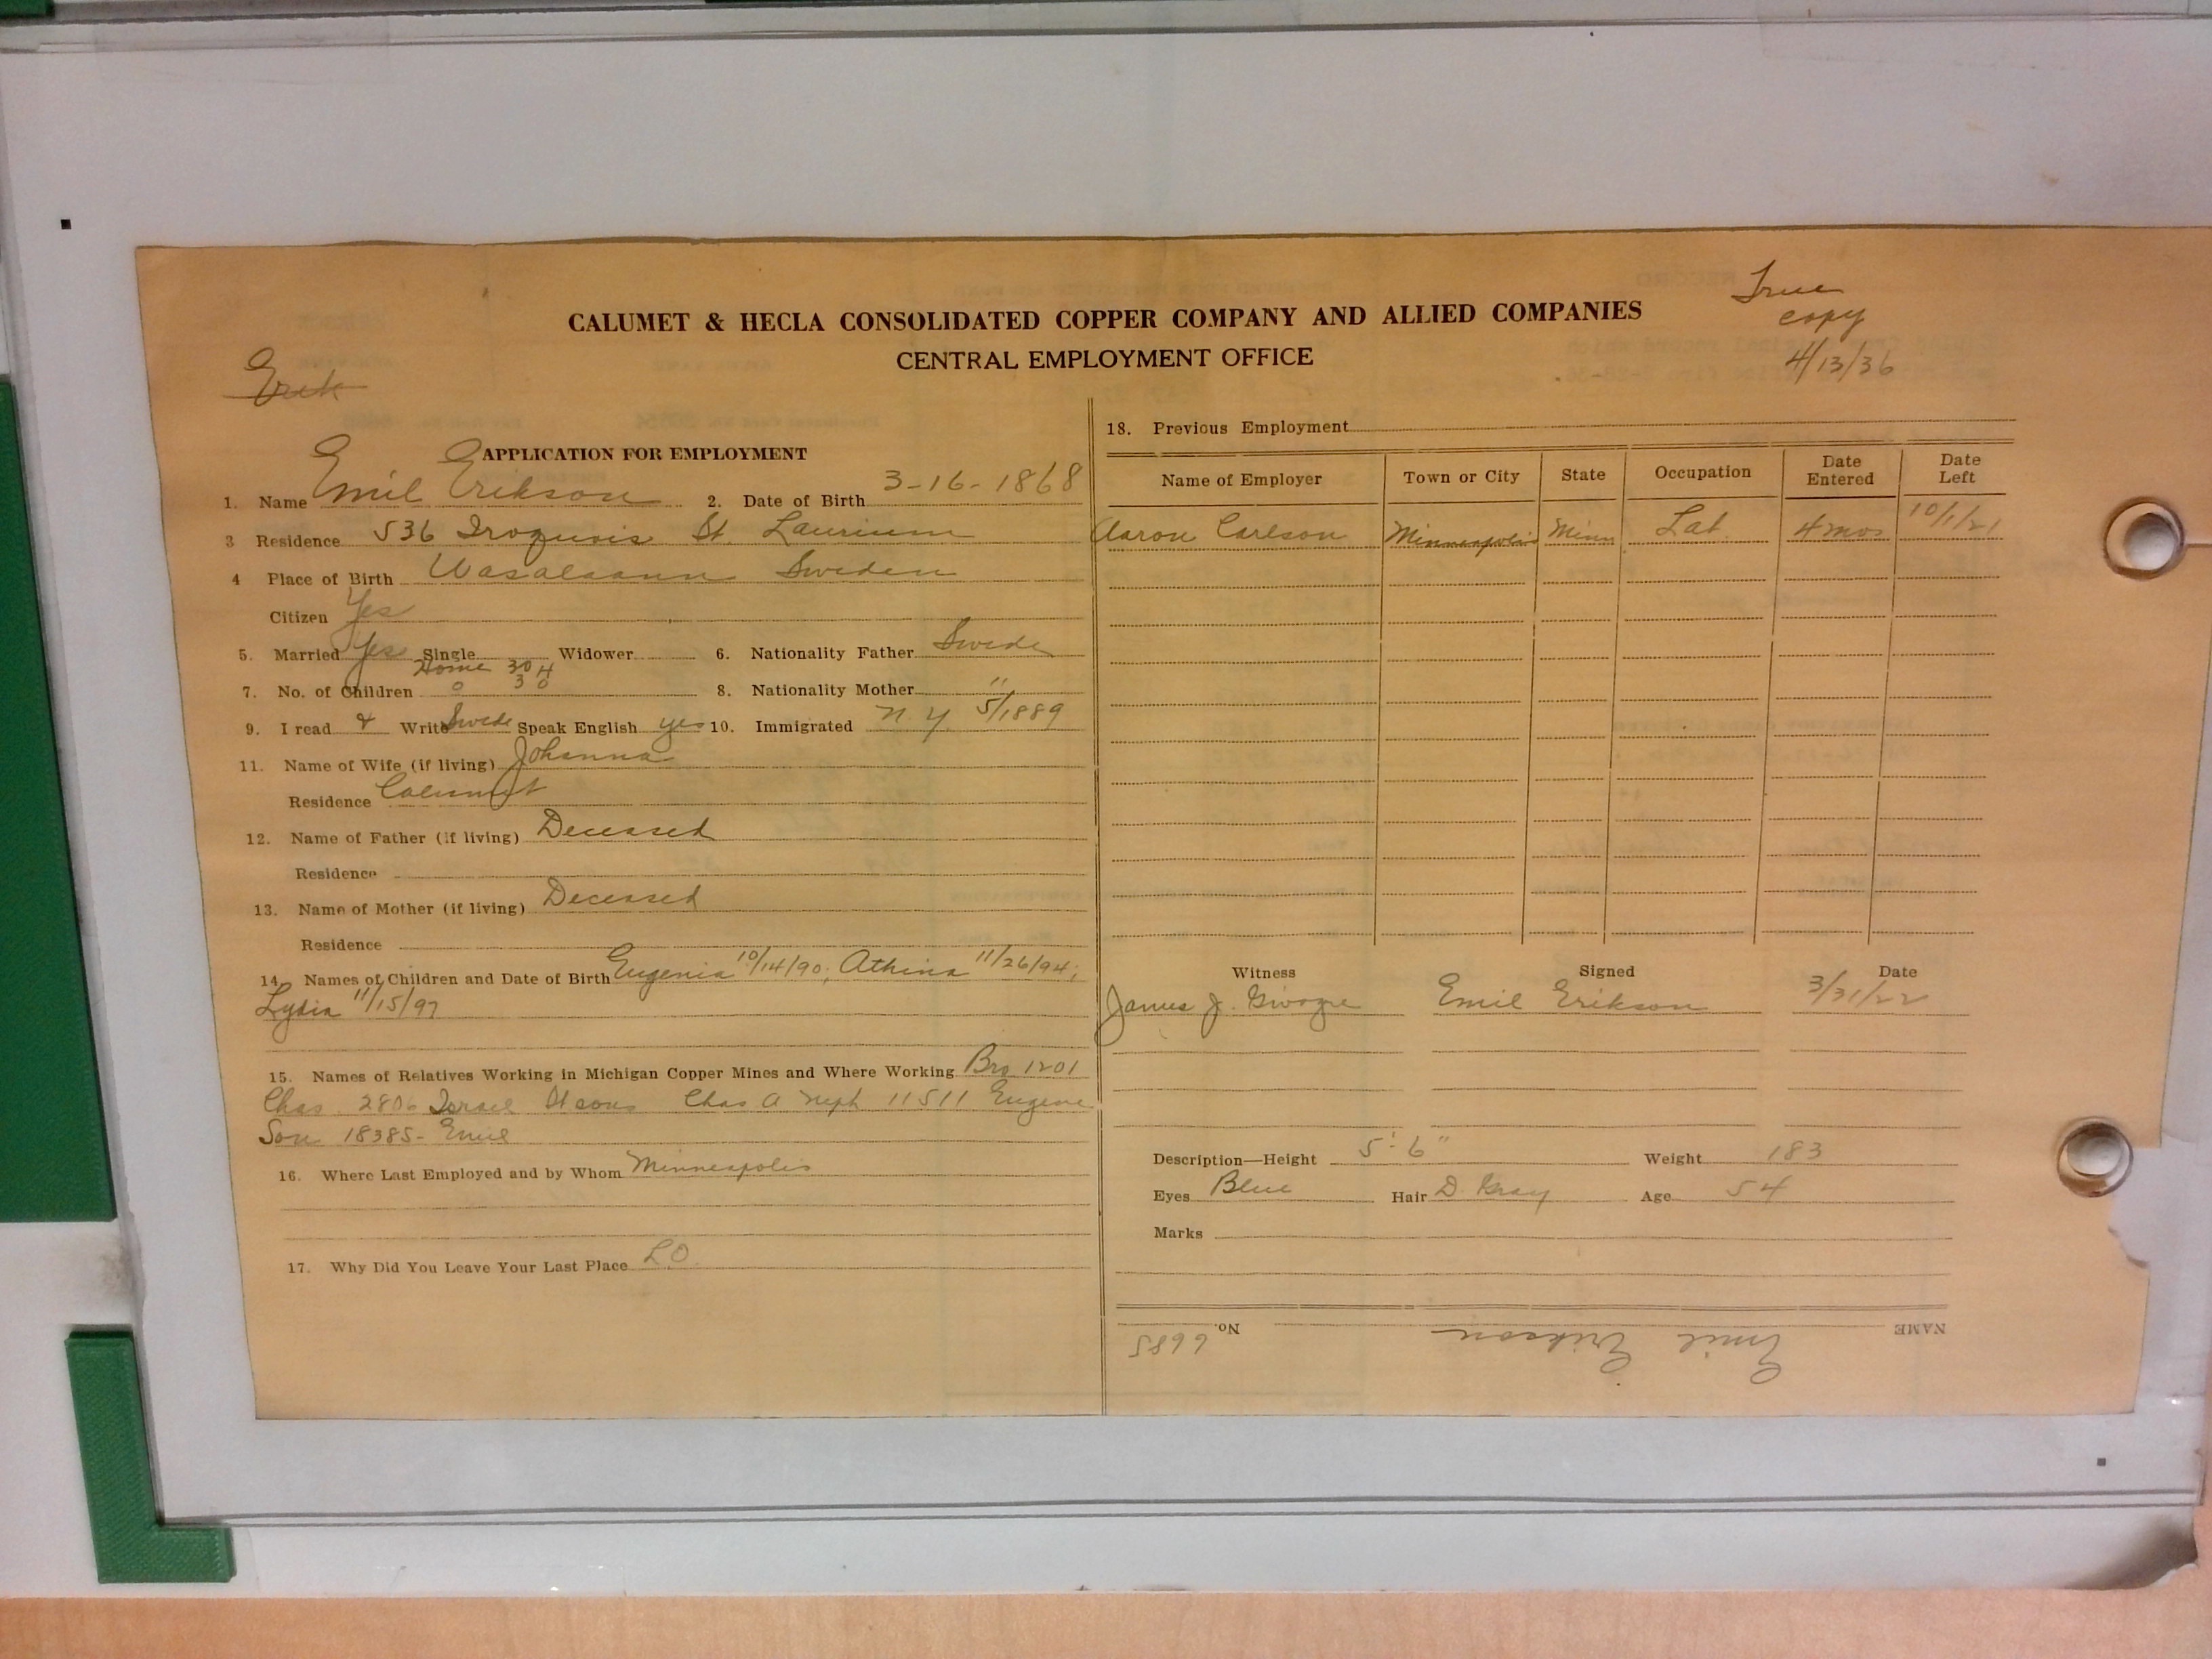 True
copy
4/13/36
CALUMET & HECLA CONSOLIDATED COPPER COMPANY AND ALLIED COMPANIES
CENTRAL EMPLOYMENT OFFICE
APPLICATION FOR EMPLOYMENT
1. Name Emil Erikson 2. Date of Birth 3-16-1868
3 Residence 536 Iroquois St. Laurium
4 Place of Birth Wasalaann Sweden
Citizen Yes
5. Married Yes Single Widower 6. Nationality Father Swede
Home 30 H
7. No. of Children 0 3 0 8. Nationality Mother "
9. I read & Write Swede Speak English yes 10. Immigrated N Y 5/1889
11. Name of Wife (if living) Johanna
Residence Calumet
12. Name of Father (if living) Deceased
Residence
13. Name of Mother (if living) Deceased
Residence
14. Names of Children and Date of Birth Eugenia 10/14/90; Athina 11/26/94;
Lydia 11/15/97
15. Names of Relatives Working in Michigan Copper Mines and Where Working Bro 1201
Chas 2806 Israel Chas A neph 11511 Eugene
Son 18385- Emil
16. Where Last Employed and by Whom Minneapolis
17. Why Did You Leave Your Last Place LO
18. Previous Employment
Name of Employer Town or City State Occupation Date Entered Date Left
Aaron Carlson Minneapolis Minn Lab. 4 mos 10/1/21
Witness Signed Date
James J. Emil Erikson 3/31/22
Description—Height 5' 6" Weight 183
Eyes Blue Hair D. Gray Age 54
Marks
NAME Emil Erikson No. 6685